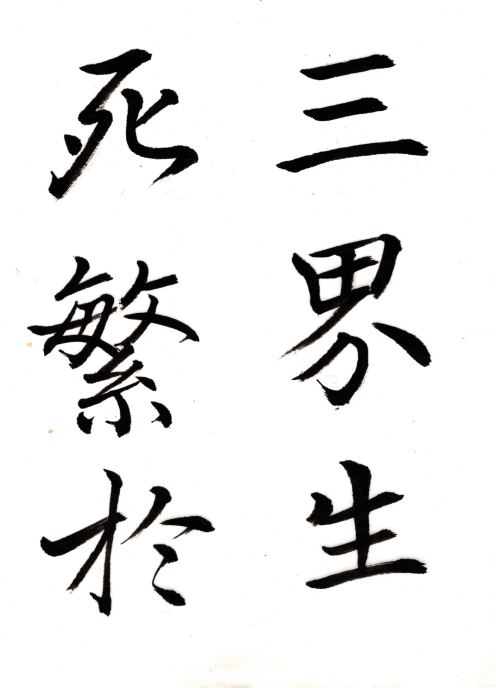 三界生
死繁於